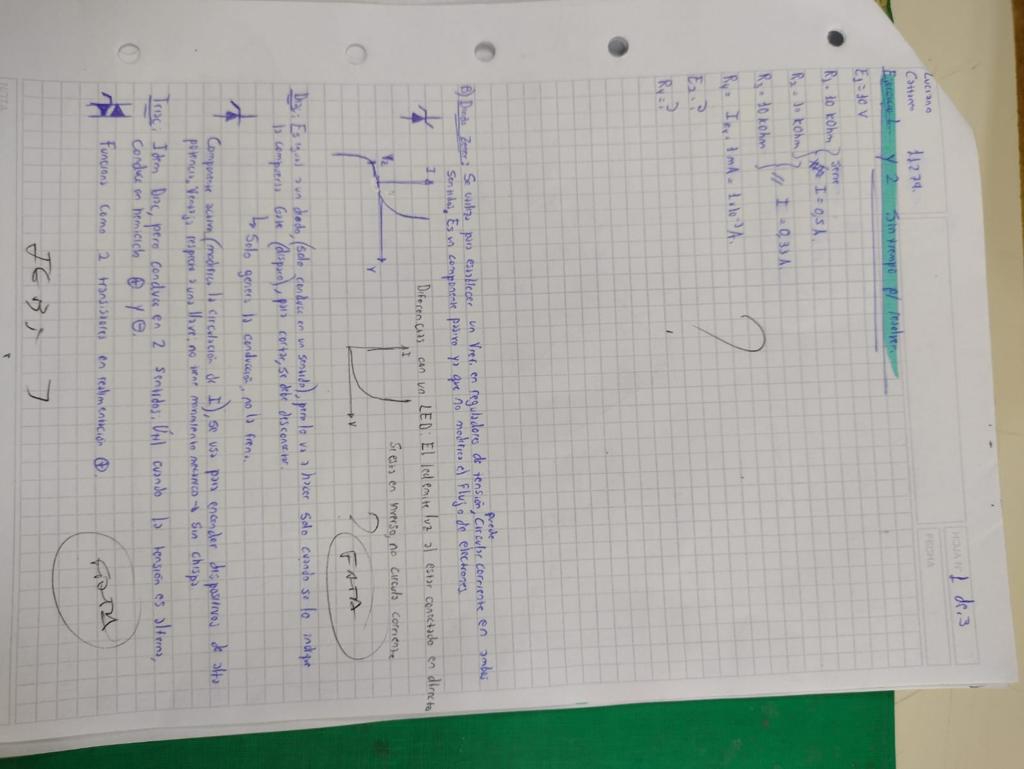 HOJA N° 1 de 3
FECHA
Luciano
11274.
Ejercicio 1 y 2 Sin tiempo p/ resolver.
E1=10 V
R1= 10 kOhm
Serie
I = 0,5 A.
R2= 10 kOhm
// I = 0,33 A.
R3= 10 kOhm
R4= IR4= 1 mA = 1.10⁻³ A.
?
E2=?
R4=?
B) Diodo Zener: Se utiliza para establecer un Vref. en reguladores de tensión, puede circular corriente en ambos
sentidos. Es un componente pasivo ya que no modifica el flujo de electrones
I
Vz
V
Diferencias con un LED: El led emite luz al estar conectado en directo
I
V
Si esta en inverso, no circula corriente
?
FALTA
Diac: Es igual a un diodo, (solo conduce en un sentido), pero lo va a hacer solo cuando se lo indique
la compuerta Gate (disparo), para cortar, se debe desconectar.
↳ Solo genera la conducción, no la frena.
Componente activo (modifica la circulación de I), se usa para encender dispositivos de alta
potencia. Ventaja respecto a una llave: no tiene movimiento mecánico → Sin chispa
Triac: Idem Diac, pero conduce en 2 sentidos. Útil cuando la tensión es alterna,
conduce en hemiciclo ⊕ y ⊖.
Funciona como 2 transistores en realimentación ⊕.
FALTA
NOTA